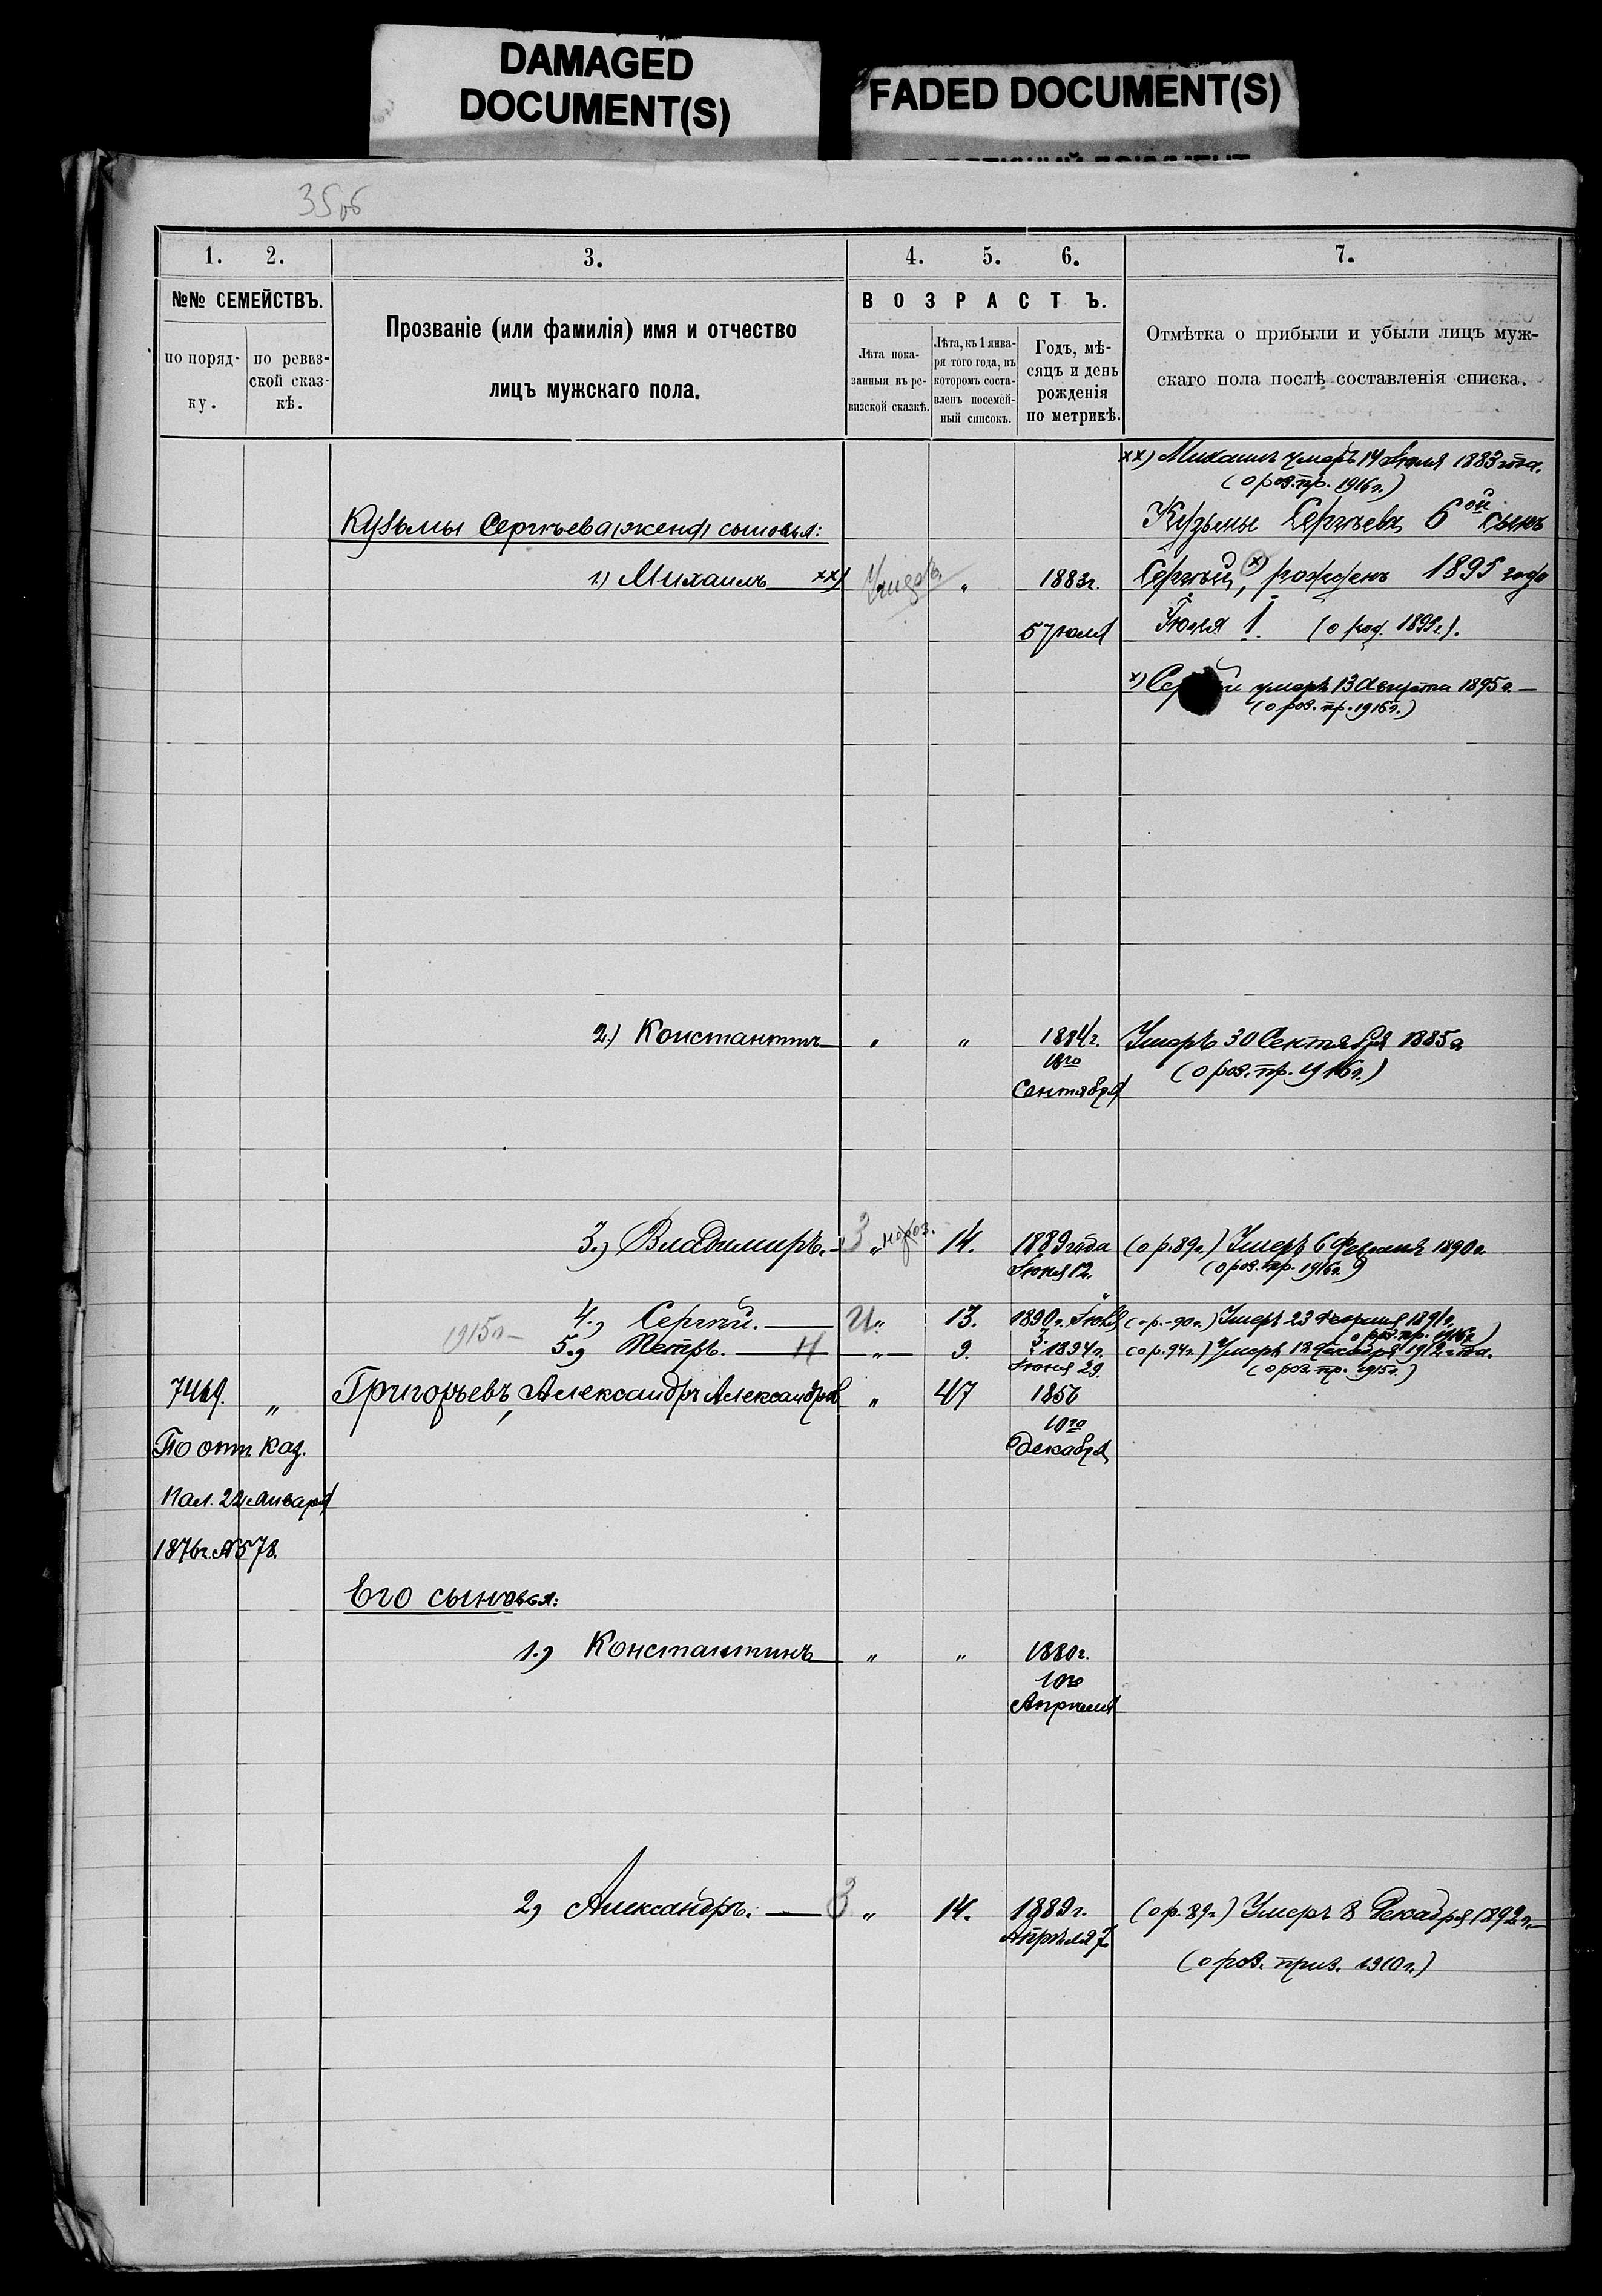 DAMAGED
DOCUMENT(S)
FADED DOCUMENT(S)
35об
1. 2. 3. 4. 5. 6. 7.
№№ СЕМЕЙСТВЪ.
по поряд-
ку.
по ревиз-
ской сказ-
кѣ.
Прозваніе (или фамилія) имя и отчество
лицъ мужскаго пола.
ВОЗРАСТЪ.
Лѣта пока-
занныя въ ре-
визской сказкѣ.
Лѣта, къ 1 янва-
ря того года, въ
которомъ соста-
вленъ посемей-
ный списокъ.
Годъ, мѣ-
сяцъ и день
рожденія
по метрикѣ.
Отмѣтка о прибыли и убыли лицъ муж-
скаго пола послѣ составленія списка.
хх) Михаилъ умеръ 14 Іюля 1883 года.
(о роз. пр. 1916 г.)
Кузьмы Сергѣева (женъ) сыновья:
Кузьмы Сергѣева 6ой сынъ
1) Михаилъ хх) Умеръ „ 1883г.
Сергѣй х), рожденъ 1895 года
5 Іюля
Іюля 1. (о род. 1895 г.).
х) Сер й умеръ 13 Августа 1895 г. —
(о роз. пр. 1916 г.)
2.) Константинъ „ „ 1884г. Умеръ 30 Сентября 1885 г.
18го
Сентября
(о роз. пр. 1916 г.)
3.) Владимиръ. — 3 „ 14. 1889 года (о р. 89 г.) Умеръ 6 Февраля 1890 г.
Іюня 12. (о роз. пр. 1916 г.)
4.) Сергѣй. — „ 13. 1890 г. Іюля (о р. 90 г.) Умеръ 23 1891 г.
3. (о роз. пр. 1916 г.)
1915 г. —
5.) Петръ. — Н — „ — 9. 1894 г. (о р. 94 г.) Умеръ 18 Декабря 1912 года.
Іюня 29. (о роз. пр. 1915 г.)
7469. „ Григорьевъ, Александръ Александровъ „ 47 1856
10го
Декабря
По отн. Каз.
Пал. 22 Января
1876г. № 578.
Его сыновья:
1.) Константинъ „ „ 1880г.
10го
Апрѣля
2) Александръ. — 3 „ 14. 1889 г. (о р. 89 г.) Умеръ 8 Декабря 1892 г. —
Апрѣля 7.
(о роз. приз. 1910 г.)